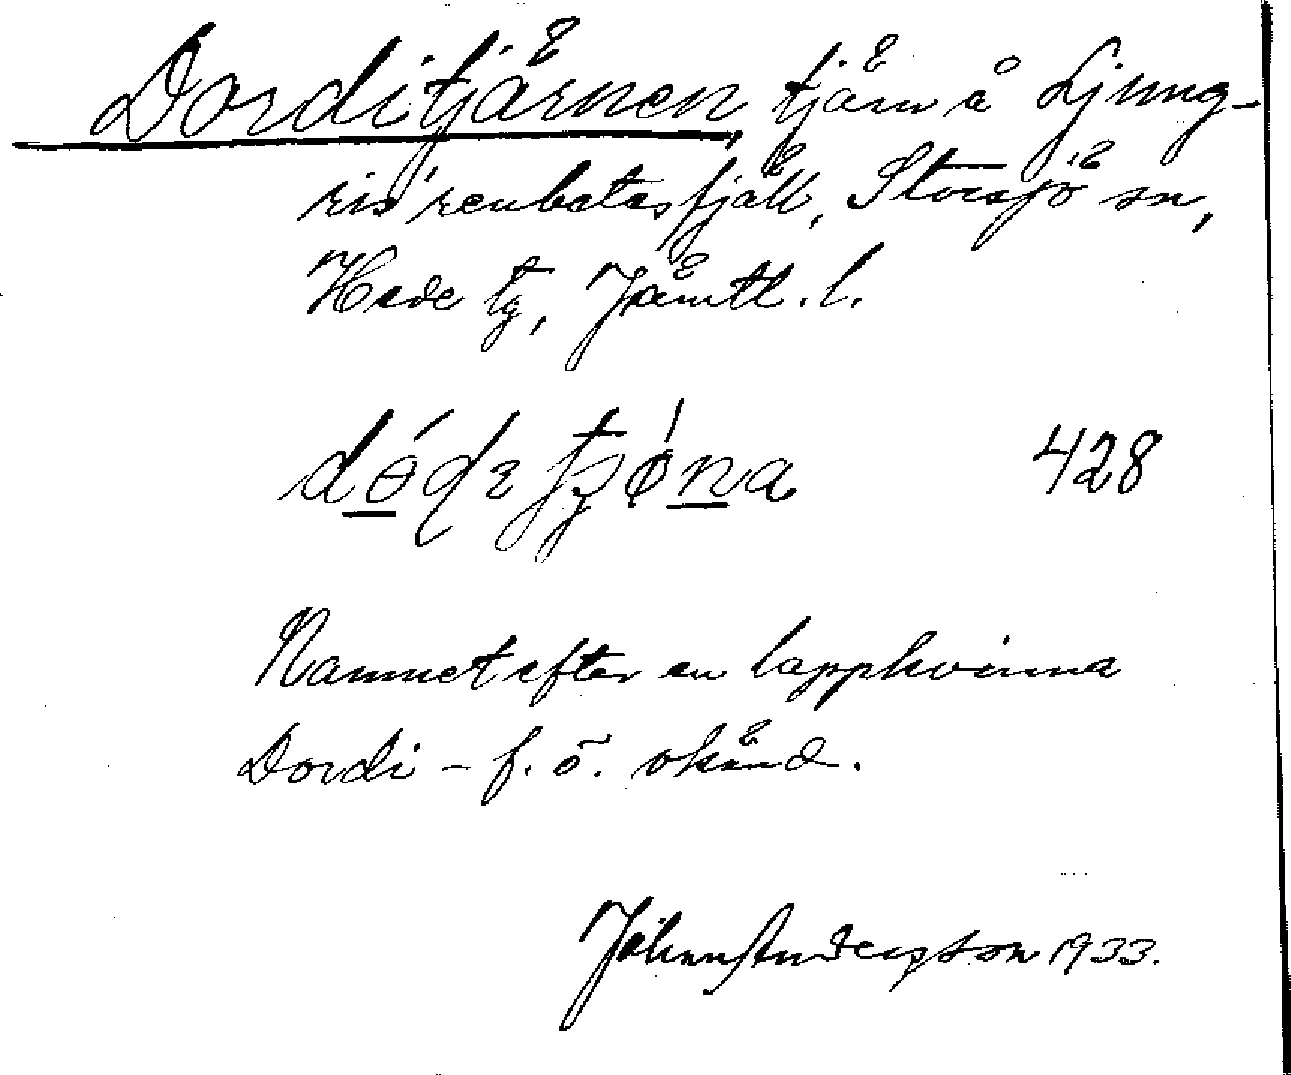 Dorditjärnen, tjärn å Ljung-
ris' renbetesfjäll, Storsjö sn,
Hede tg, Jämtl. l.
428
Namnet efter en lappkvinna
Dordi – f. ö. okänd.
Johan Andersson 1933.